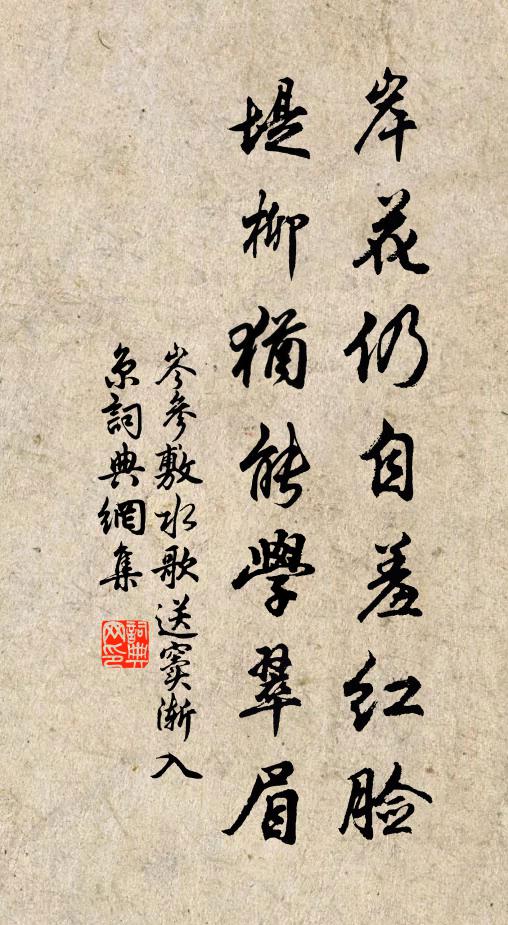 岸花仍自羞红脸
堤柳猶能學翠眉
岑參敷水歌送窦渐入
京詞典網集
詞典
网印